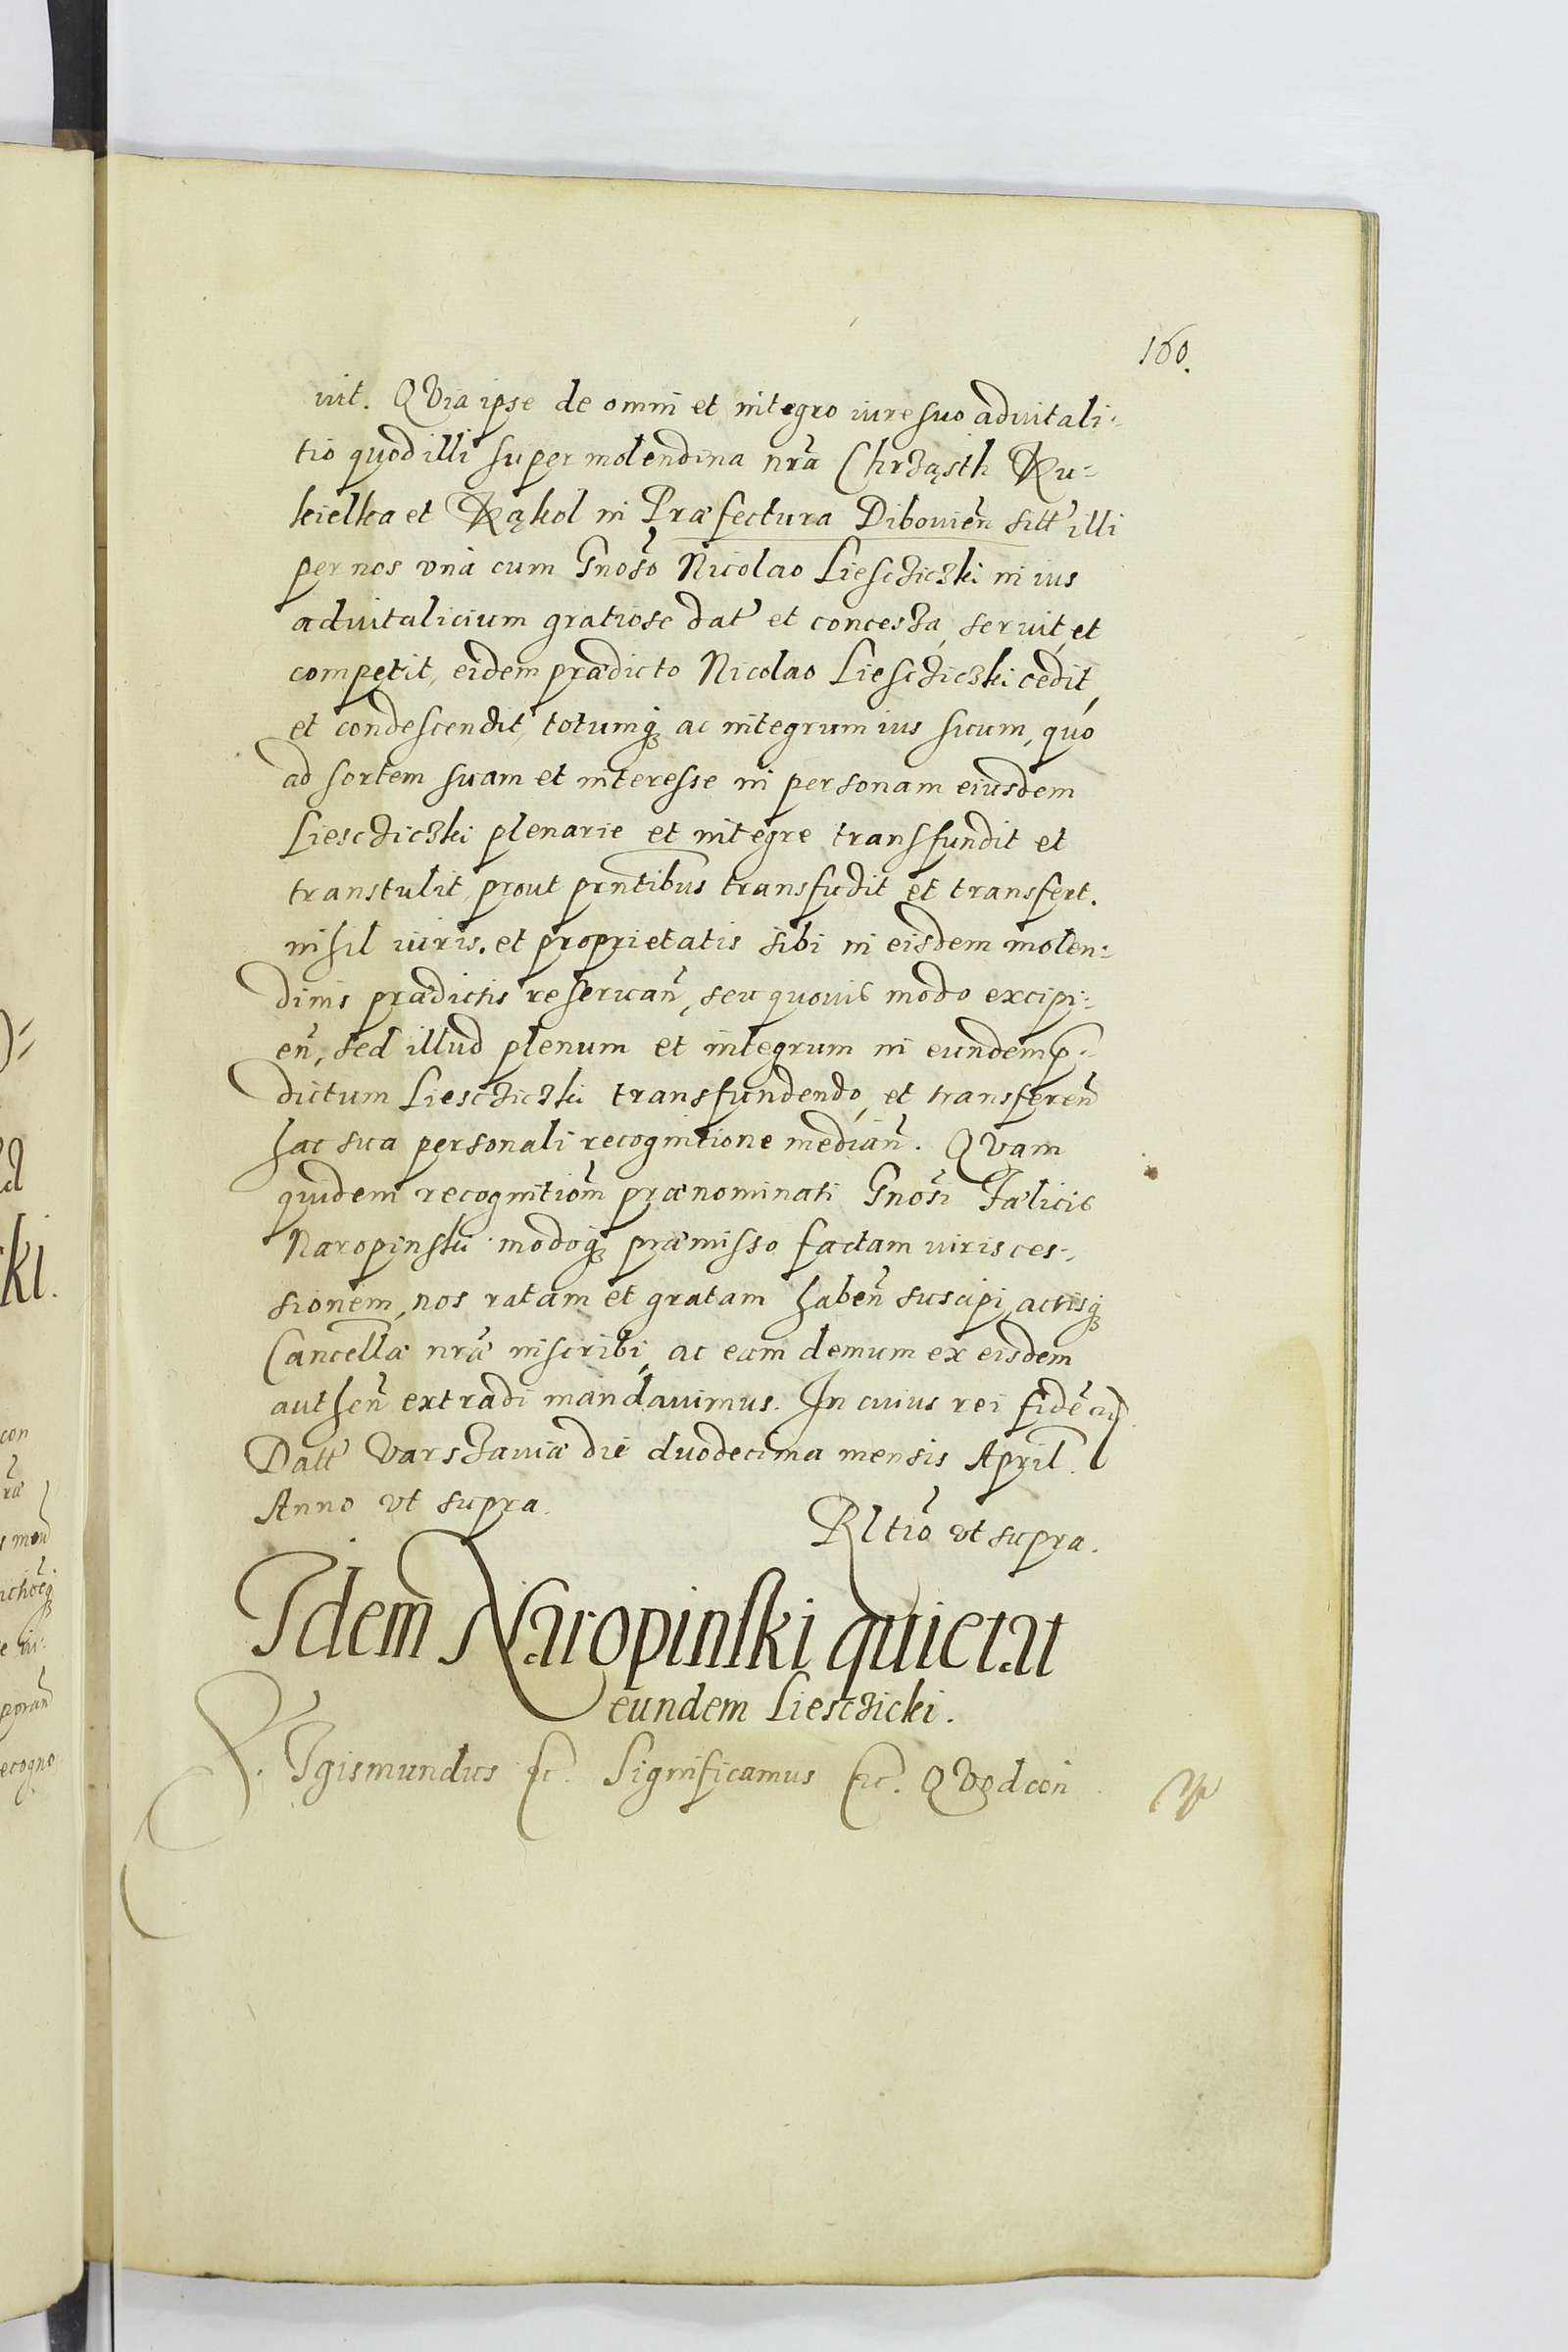 160.
uit. QVia ipse de omni et integro iure suo aduitali-
tio quod illi super molendina nrã Chrząsth Ku-
kielka et Kąkol in Præfectura Dibouien̄ sitt illi
per nos vnà cum Gnoso Nicolao Liescziczki in ius
aduitalicium gratiose dat et concessa, seruit, et
competit, eidem prædicto Nicolao Liescziczki cedit,
et condescendit, totumq ac integrum ius suum, quo
ad sortem suam et interesse in personam eiusdem
Liescziczki plenarie et integre transfundit et
transtulit, prout pntibus transfudit et transfert.
nihil iuris et proprietatis sibi in eisdem molen-
dinis prædictis reseruan̄, seu quouis modo excipi-
en̄, sed illud plenum et integrum in eundem p-
dictum Liescziczki transfundendo, et transferen̄
hac sua personali recognitione median̄. QVam
quidem recognitiom prænominati Gnosi Fælicis
Naropinski modoq præmisso factam iuris ces-
sionem, nos ratam et gratam haben̄ suscipi, actisq
Cancellæ nræ inscribi, ac eam demum ex eisdem
authen̄ extradi mandauimus. In cuius rei fidē
Datt Varszauiæ die duodecima mensis April
Anno vt supra.
Rltio vt supra.
Idem Naropinski quietat
eundem Liesczicki.
S. Igismundus etc. Significamus etc. QVod con
con
ræ
ecogno
ki.